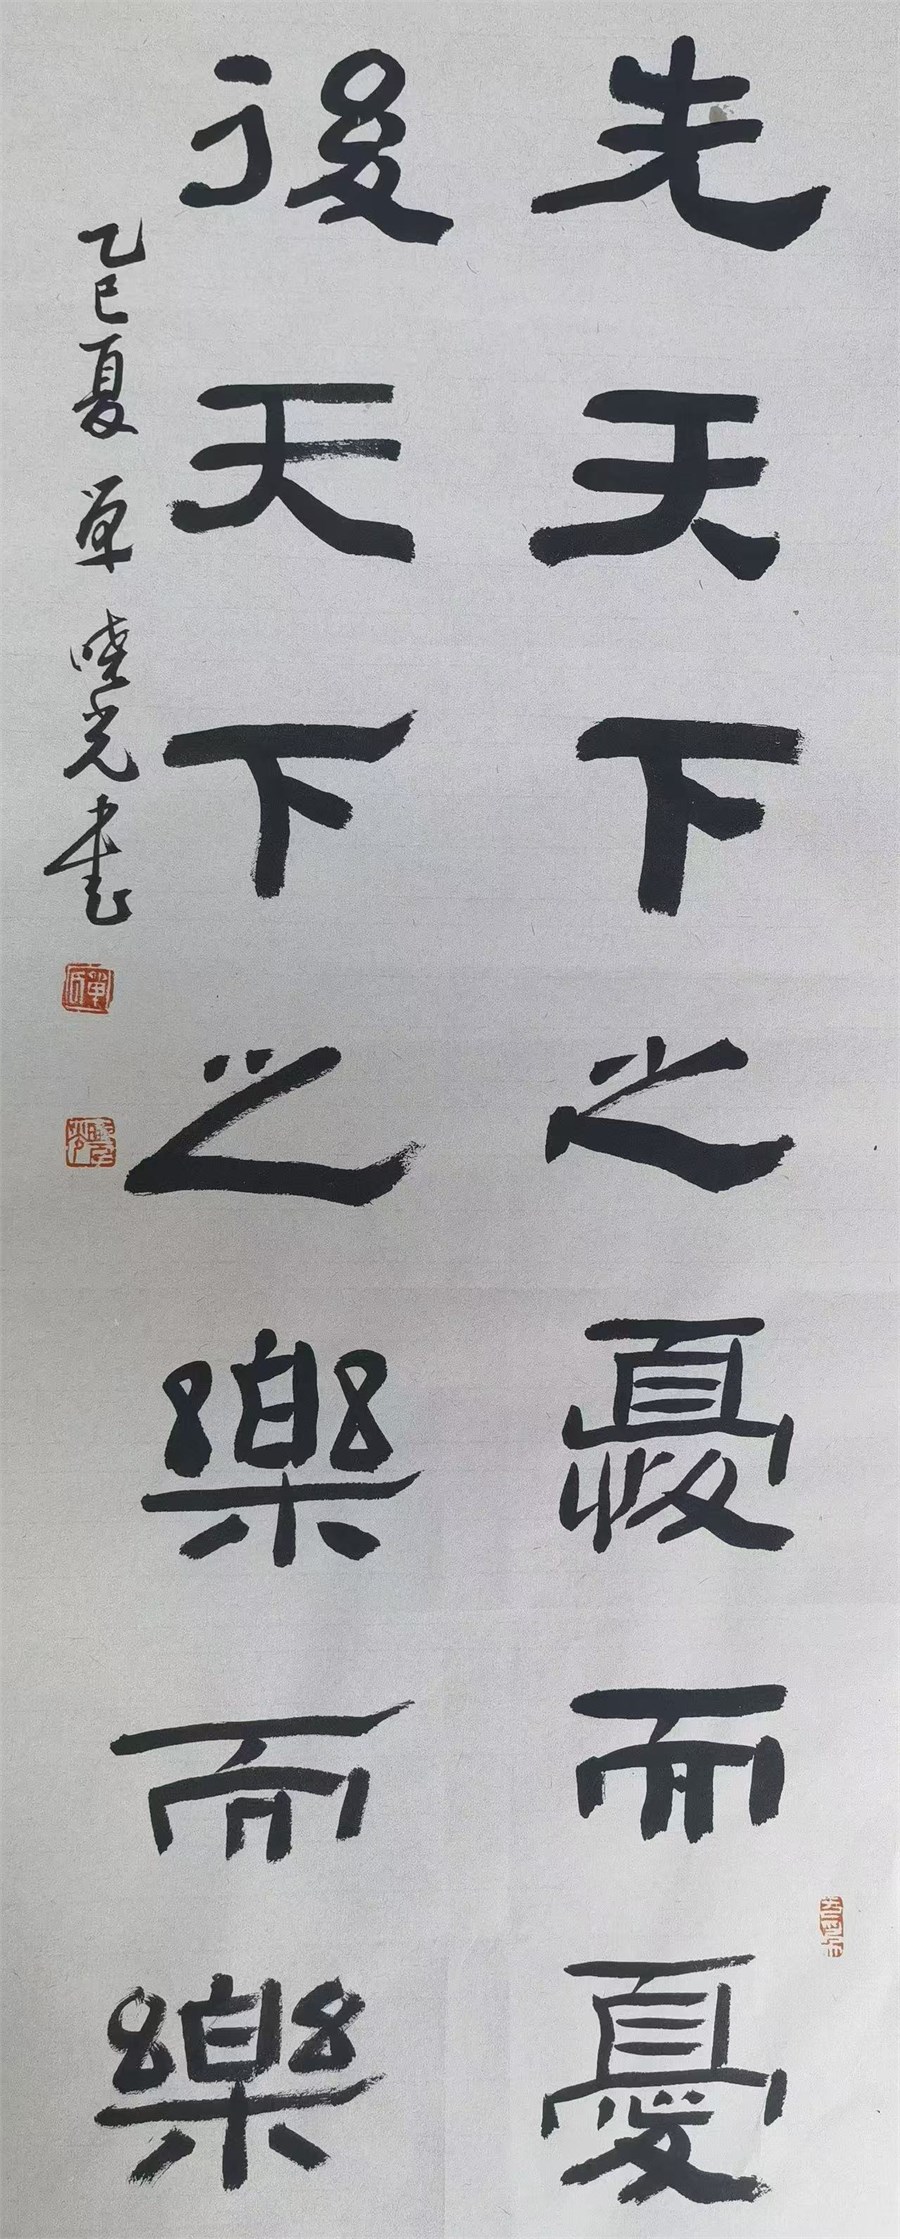 先天下之憂而憂
後天下之樂而樂
乙巳夏單曉光書